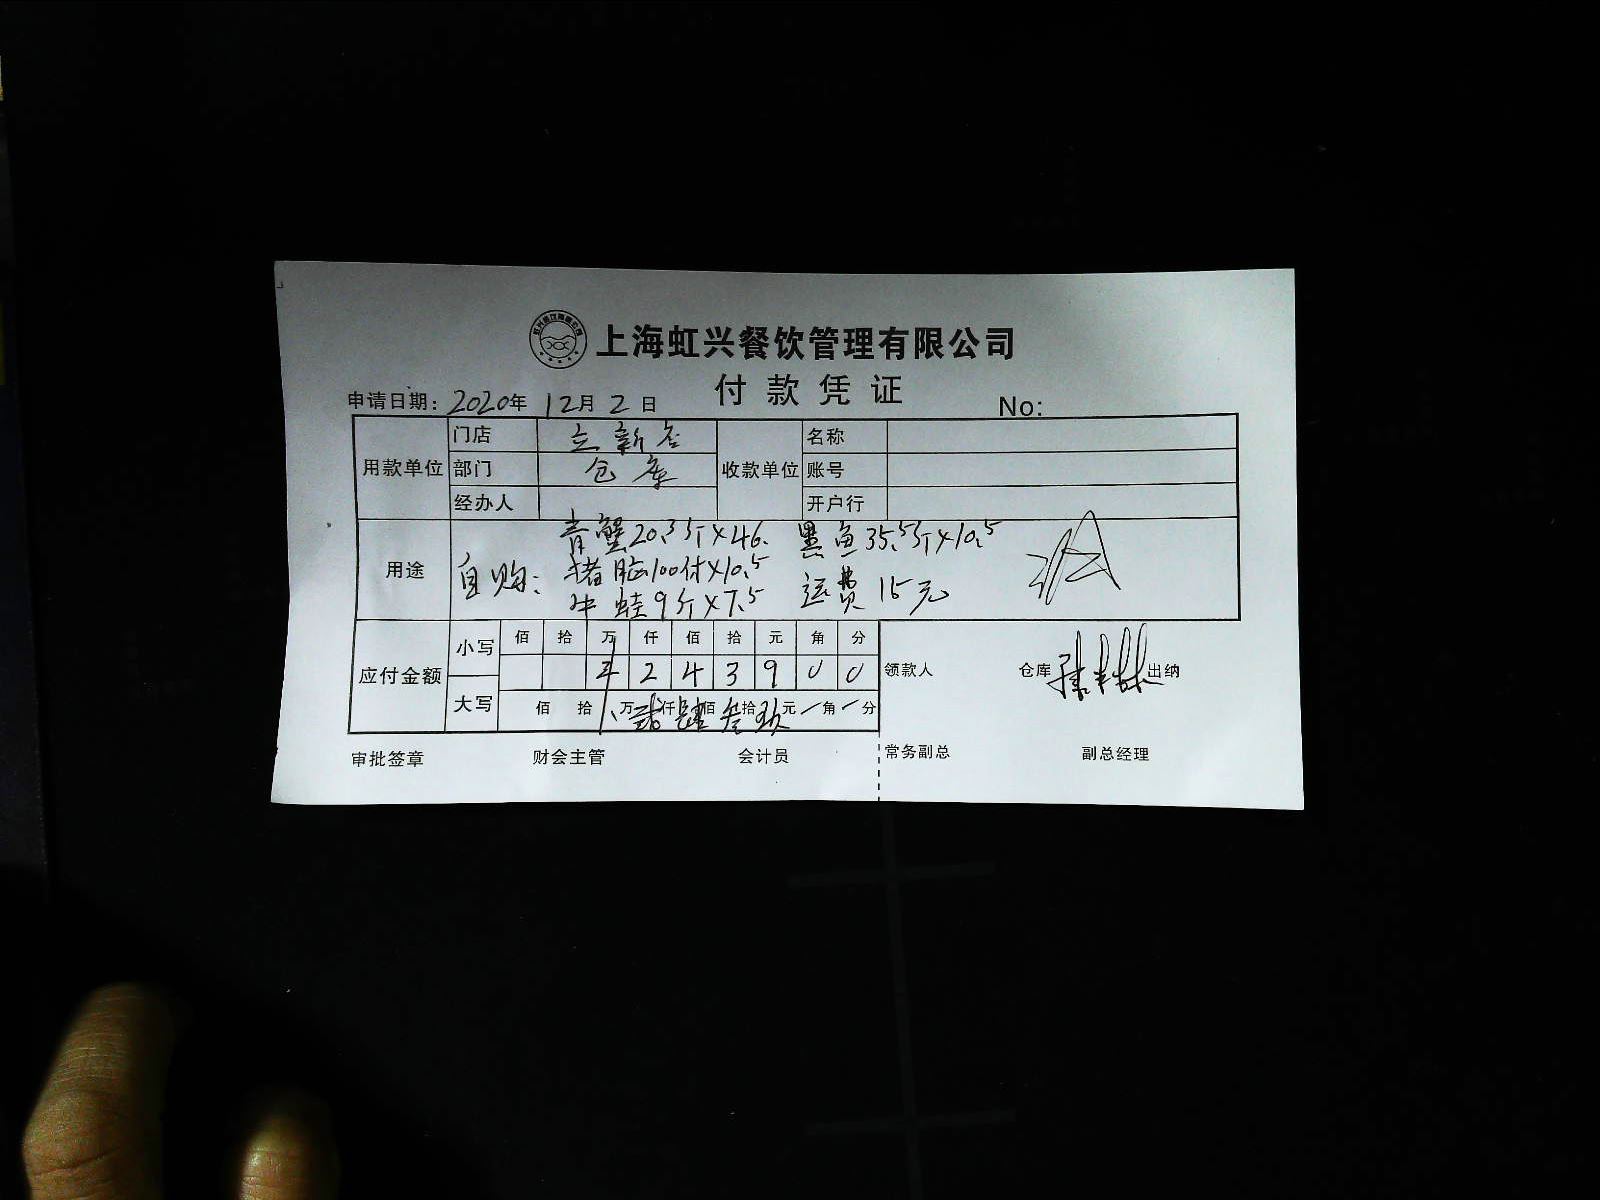 上海虹兴餐饮管理有限公司
付款凭证
申请日期: 2020年 12月 2日 No:
用款单位 门店 立新店 收款单位 名称
部门 仓库 账号
经办人 开户行
用途 自购: 青蟹20.3斤×46. 黑鱼35.5斤×10.5
猪脑100付×10.5 运费15元
牛蛙9斤×7.5
应付金额 小写 佰 拾 万 仟 佰 拾 元 角 分
2 4 3 9 0 0
大写 佰 拾 万贰仟肆佰叁拾玖元/角/分
领款人 仓库 出纳
审批签章 财会主管 会计员 常务副总 副总经理